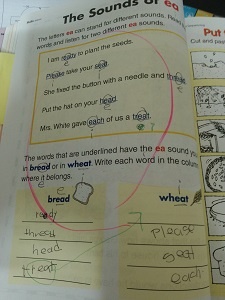 The Sounds of ea
The letters ea can stand for different sounds. Read
words and listen for two different ea sounds.
I am ready to plant the seeds.
Please take your seat.
She fixed the button with a needle and thread.
Put the hat on your head.
Mrs. White gave each of us a treat.
The words that are underlined have the ea sound you
in bread or in wheat. Write each word in the column
where it belongs.
bread
wheat
ready
thread
head
treat
please
seat
each
Put
Cut and pas